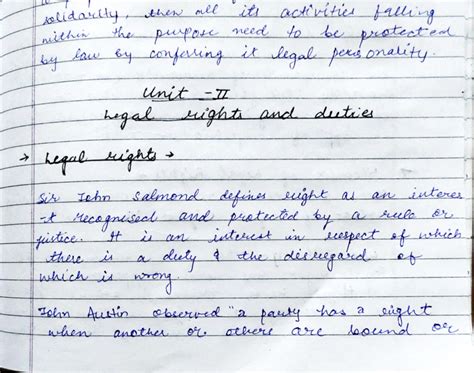 solidarity, then all its activities falling
within the purpose need to be protected
by law by conferring it legal personality.
Unit - II
Legal rights and duties
→ Legal rights →
Sir John Salmond defines right as an interes
-t recognised and protected by a rule or
justice. It is an interest in respect of which
there is a duty & the disregard of
which is wrong
John Austin observed "a party has a right
when another or others are bound or